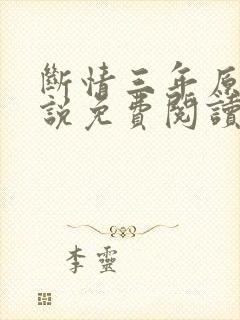 斷情三年原
說免費閱讀
李靈